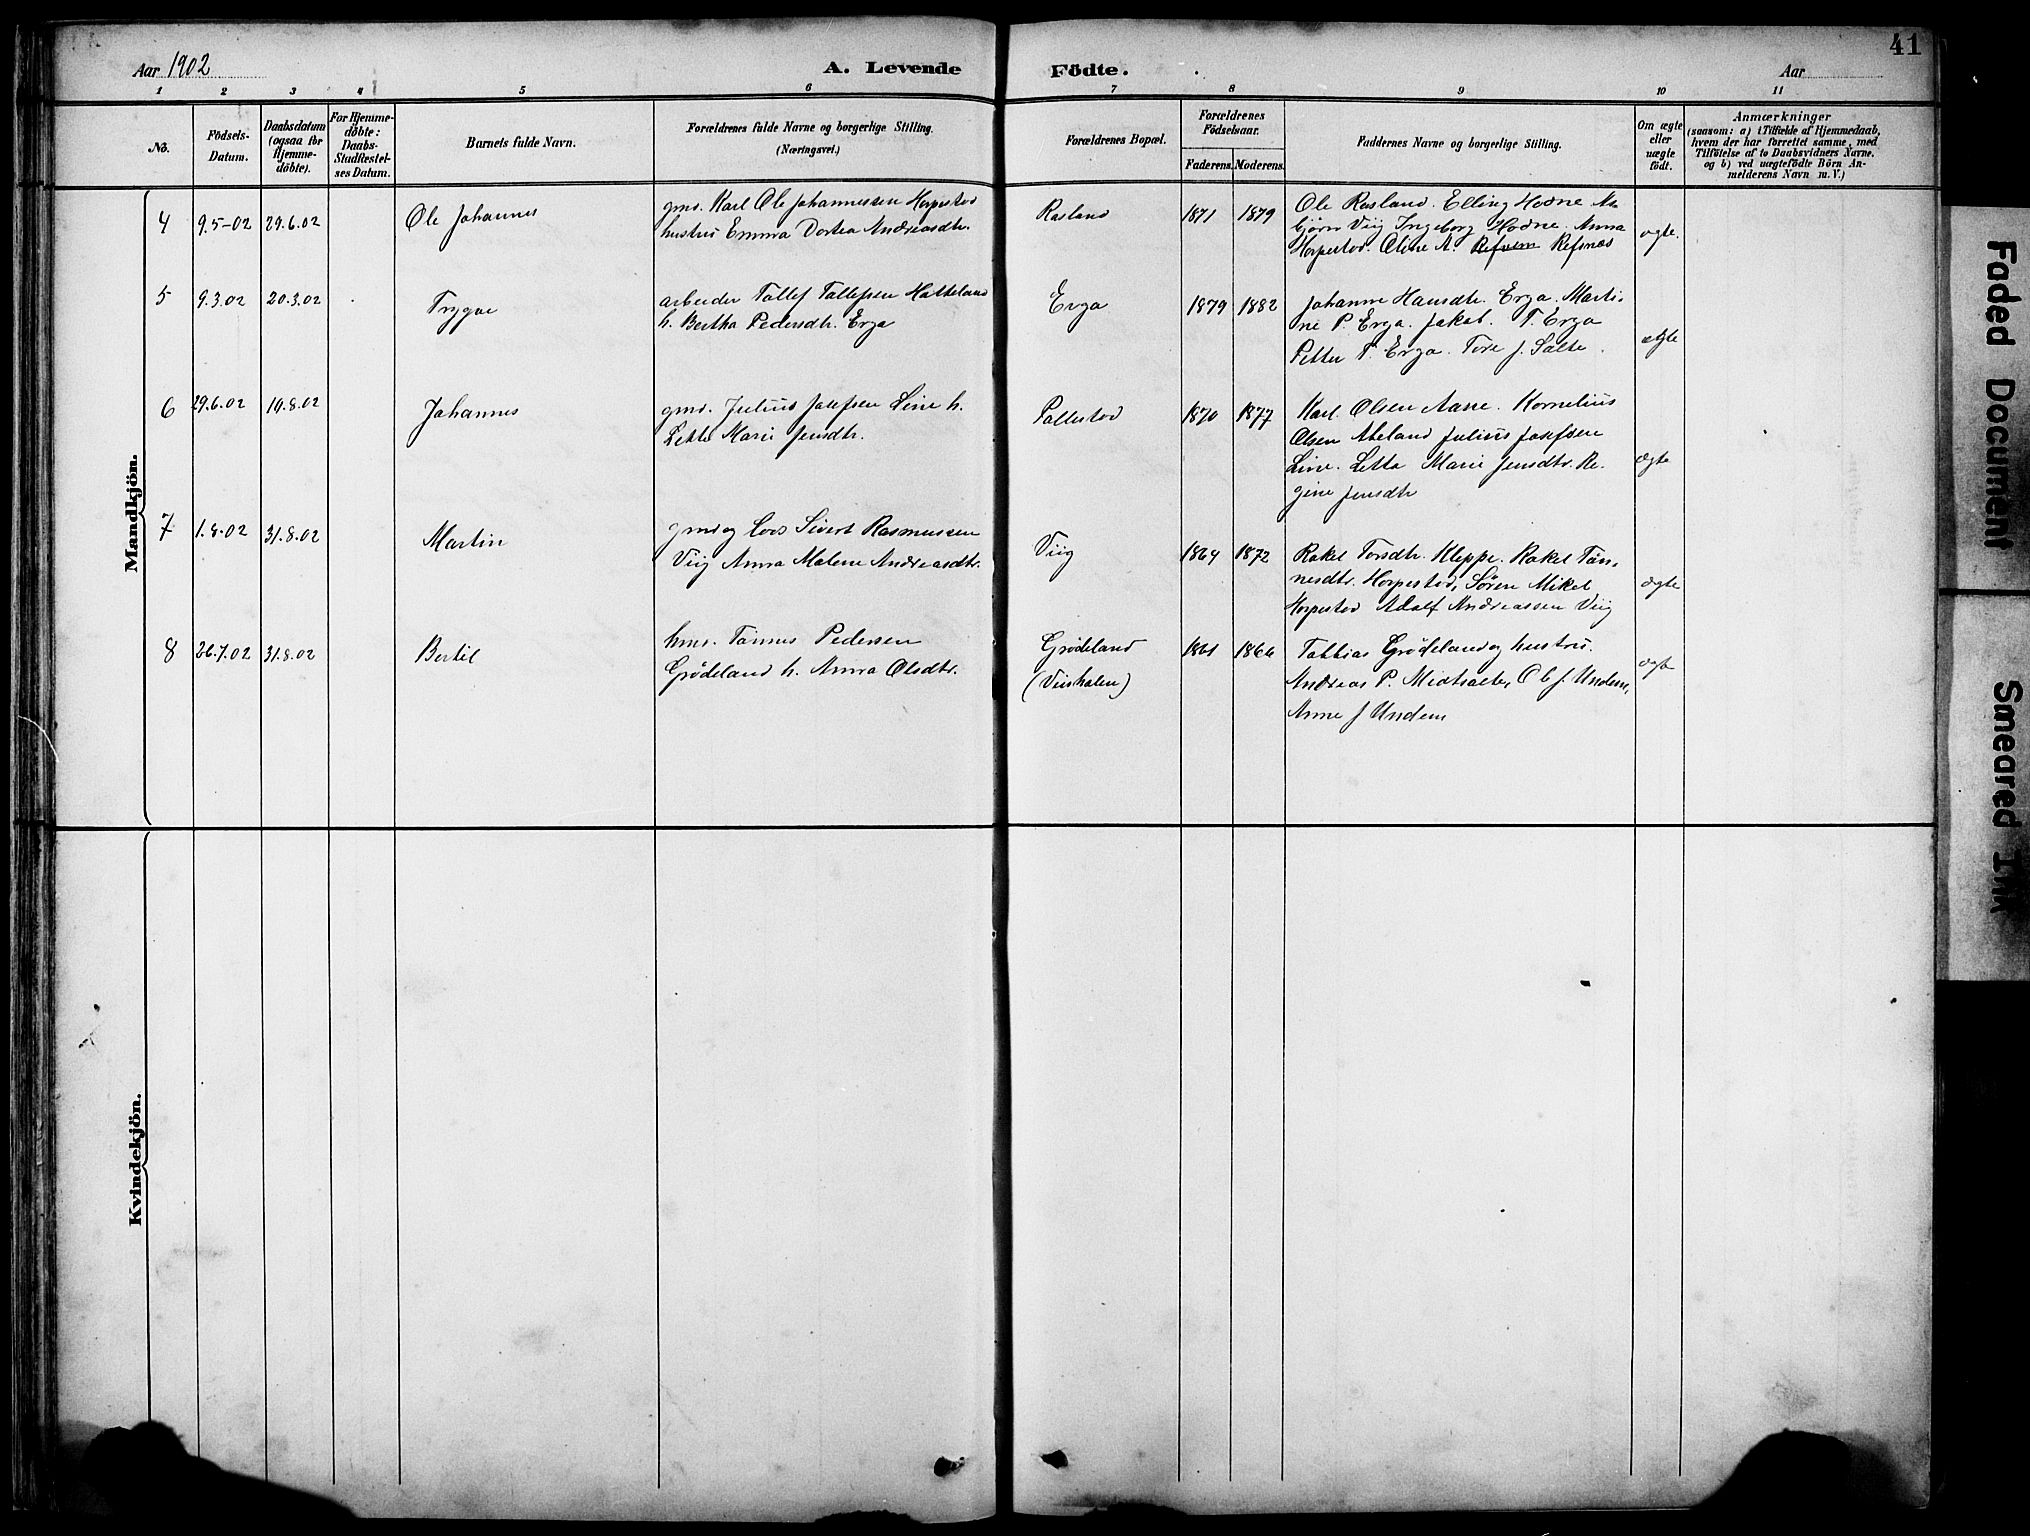 41
Aar 1902
A. Levende Födte.
Aar
1 2 3 4 5 6 7 8 9 10 11
No.
Födsels-Datum.
Daabsdatum (ogsaa for Hjemme-döbte).
For Hjemme-döbte: Daabs-Stadfæstel-ses Datum.
Barnets fulde Navn.
Forældrenes fulde Navne og borgerlige Stilling.
(Næringsvei.)
Forældrenes Bopæl.
Forældrenes Födselsaar.
Faderens. Moderens.
Faddernes Navne og borgerlige Stilling.
Om ægte eller uægte födt.
Anmærkninger
(saasom: a) i Tilfælde af Hjemmedaab,
hvem der har forrettet samme, med
Tilföielse af to Daabsvidners Navne.
og b) ved uægtefödte Börn An-
melderens Navn m. V.)
Mandkjön.
4 9.5-02 29.6.02 Ole Johannes
gmd. Karl Ole Johannessen Horpestad
hustru Emma Dortea Andreasdtr.
Rasland 1871 1879
Ole Rasland. Elling Hodne As
björn Viig Ingeborg Hodne. Anna
Horpestad. Oline A. Refvem Refsnes
ægte.
5 9.3.02 20.3.02 Trygve
arbeider Tollef Tollefsen Hatteland
h. Bertha Pedersdtr. Erga
Erga 1879 1882
Johanne Hansdtr. Erga. Marti-
ne P. Erga. Jakob. T. Erga
Petter T. Erga. Tore J. Salte.
ægte
6 29.6.02 10.8.02 Johannes
gmd. Julius Josefsen Line h.
Letta Marie Jensdtr.
Pollestad 1870 1877
Karl Olsen Aase. Kornelius
Olsen Abeland Julius Josefsen
Line. Letta Marie Jensdtr. Re-
gine Jensdtr
ægte
7 1.8.02 31.8.02 Martin
gmd og Sivert Rasmussen
Viig Anna Malene Andreasdtr.
Viig 1864 1872
Rakel Torsdtr. Kleppe. Rakel Tön-
nesdtr. Horpestad, Sören Mikel
Horpestad Adolf Andreassen Viig
ægte
8 26.7.02 31.8.02 Bertil
hmd. Tönnes Pedersen
Grödeland h. Anna Olsdtr.
Grödeland 1861 1866
Tobias Grödeland og hustru.
Andreas P. Midtsalte, Ole J. Undem,
Anne J Undem
ægte
Kvindekjön.
Faded Document
Smeared Ink